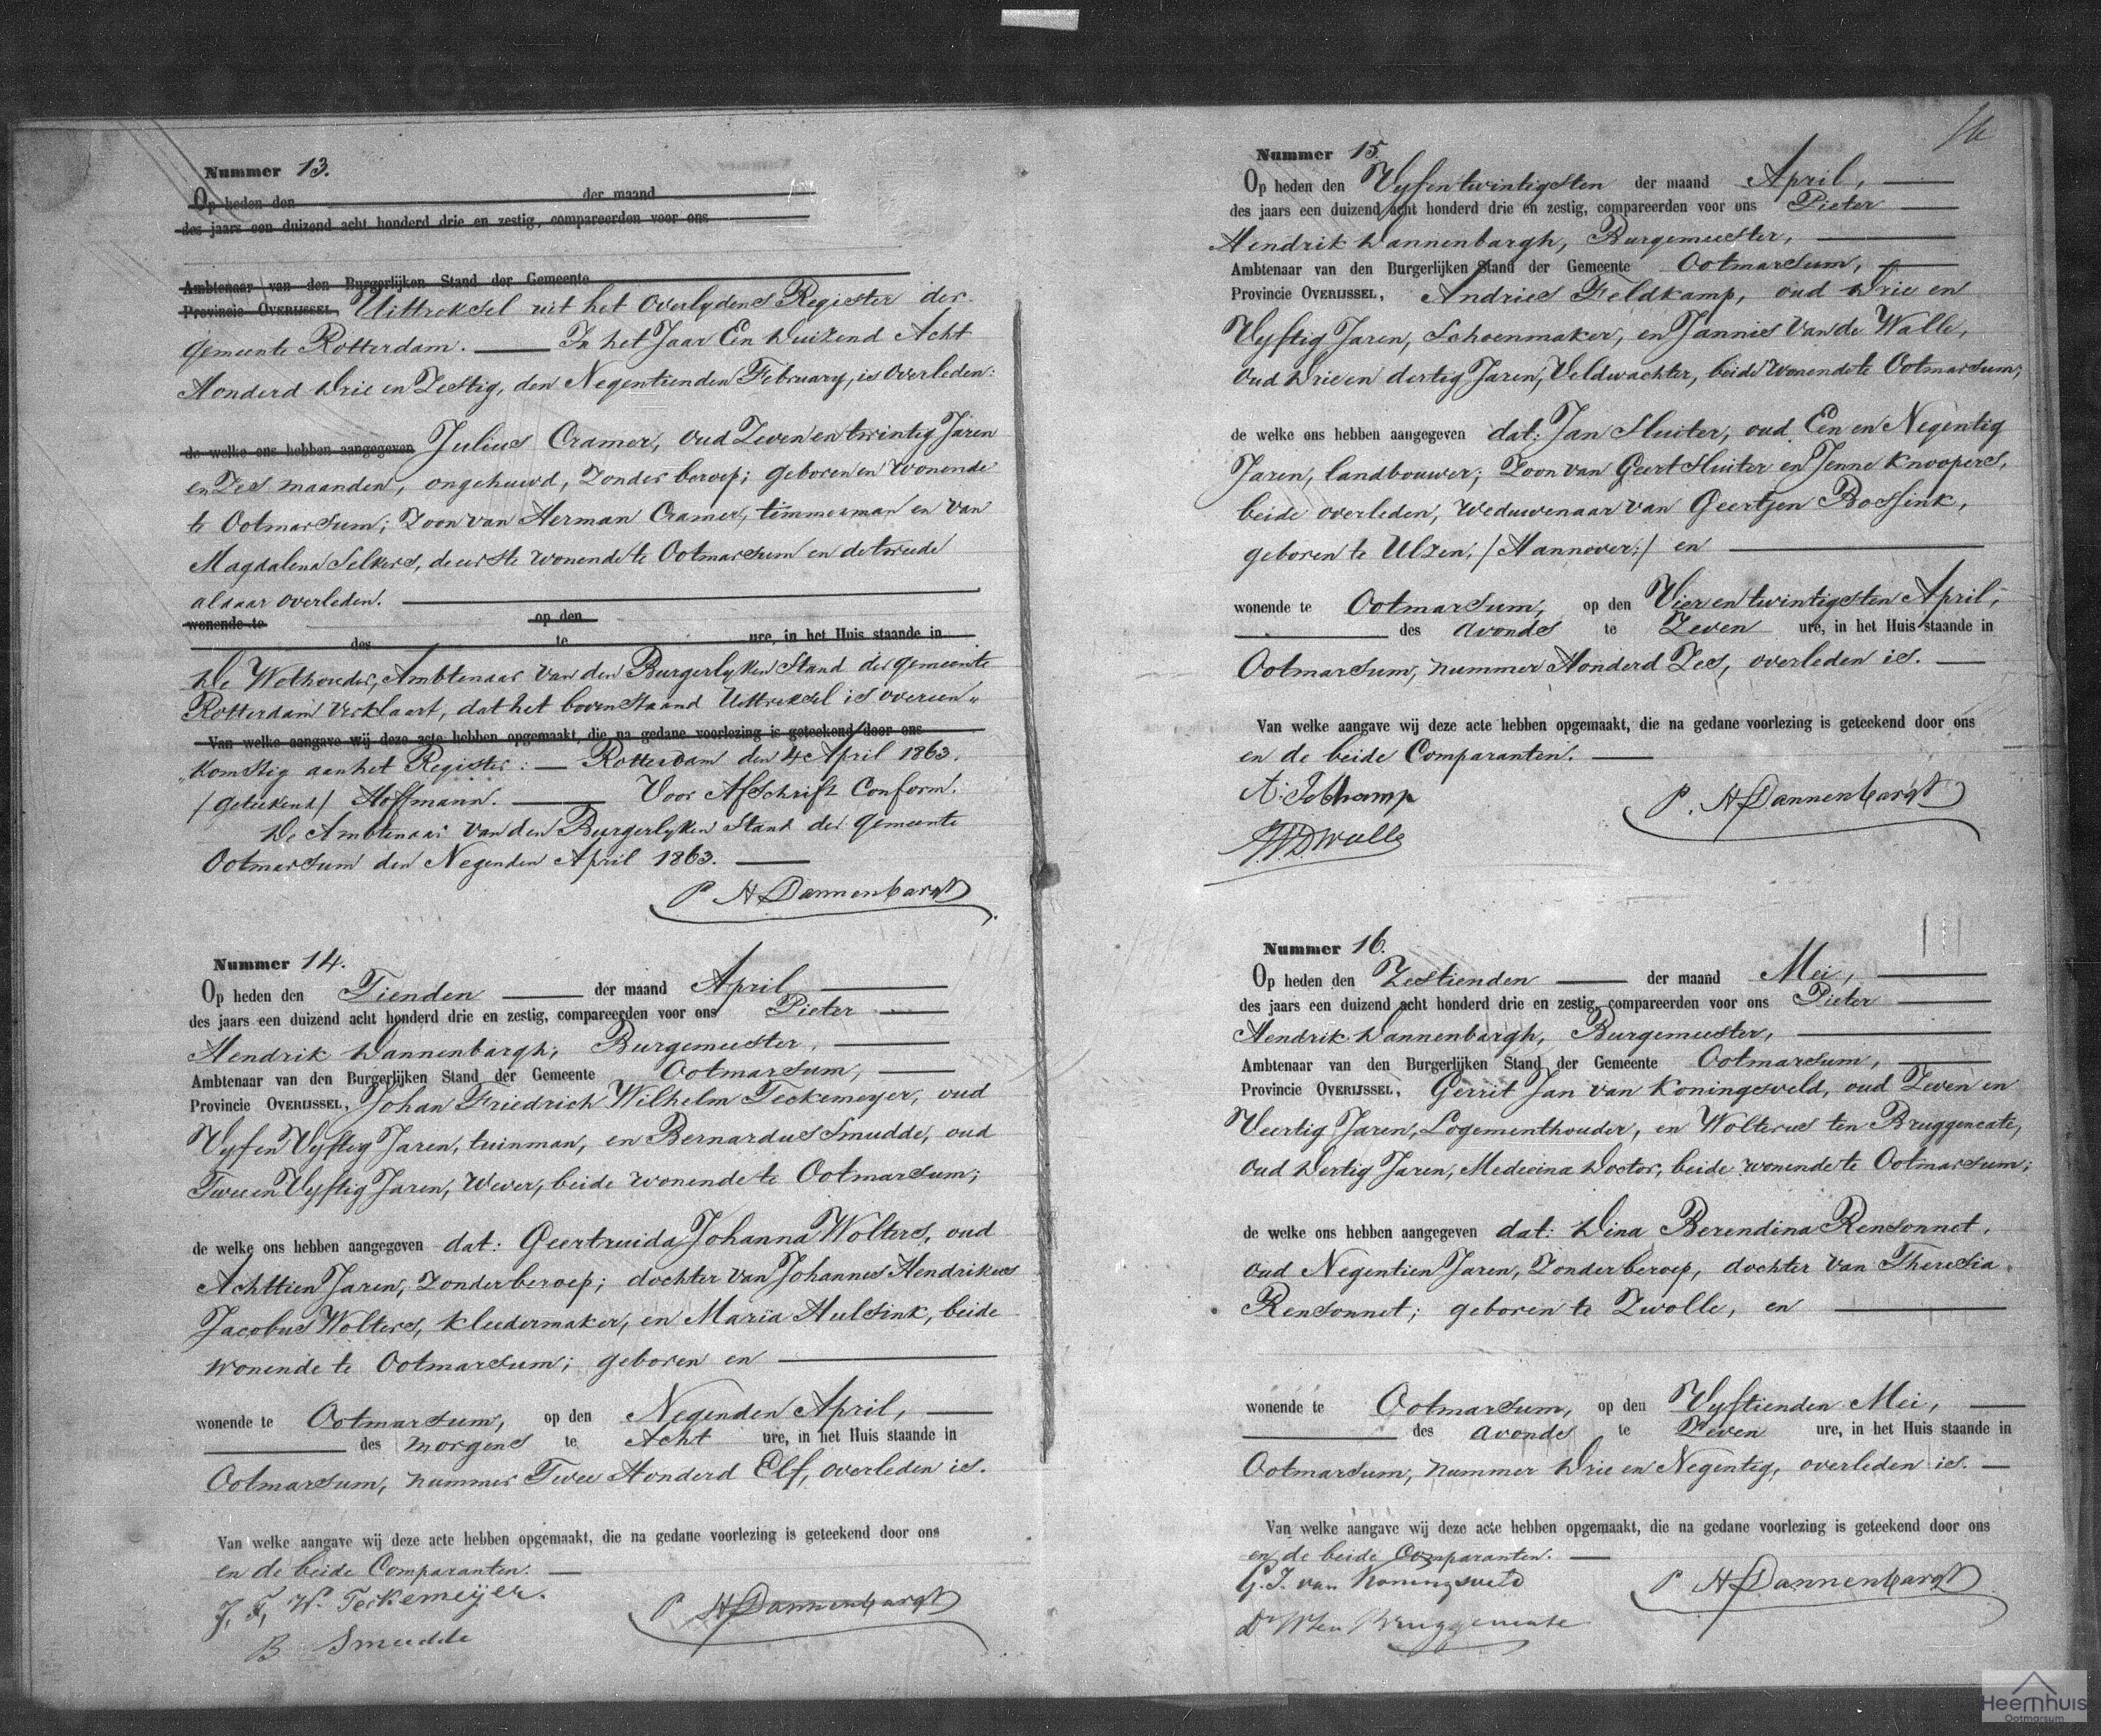 Nummer 13.
Op heden den der maand
des jaars een duizend acht honderd drie en zestig, compareerden voor ons
Ambtenaar van den Burgerlijken Stand der Gemeente
Provincie OVERIJSSEL, Uittreksel uit het Overlydens Register der
gemeente Rotterdam. In het Jaar Een Duizend Acht
Honderd Drie en Zestig, den Negentienden February, is Overleden:
de welke ons hebben aangegeven Julius Cramer, oud Zeven en twintig Jaren
en Zes maanden, ongehuwd, Zonder beroep; geboren en Wonende
te Ootmarsum; Zoon van Herman Cramer, timmerman en van
Magdalena Selkers, de eerste wonende te Ootmarsum en de tweede
aldaar overleden.
wonende te op den
des te ure, in het Huis staande in
De Wethouder, Ambtenaar van den Burgerlyken Stand der gemeente
Rotterdam verklaart, dat het bovenstaand Uittreksel is overeen„
Van welke aangave wij deze acte hebben opgemaakt, die na gedane voorlezing is geteekend door ons
„komstig aan het Register: Rotterdam den 4 April 1863.
/geteekend/ Hoffmann. Voor Afschrift Conform.
De Ambtenaar van den Burgerlyken Stand der gemeente
Ootmarsum den Negenden April 1863.
P H Dannenbargh
Nummer 14.
Op heden den Tienden der maand April
des jaars een duizend acht honderd drie en zestig, compareerden voor ons Pieter
Hendrik Dannenbargh, Burgemeester,
Ambtenaar van den Burgerlijken Stand der Gemeente Ootmarsum,
Provincie OVERIJSSEL, Johan Friedrich Wilhelm Teckemeyer, oud
Vyf en Vyftig Jaren, tuinman, en Bernardus Smudde, oud
Twee en Vyftig Jaren, Wever, beide wonende te Ootmarsum;
de welke ons hebben aangegeven dat: Geertruida Johanna Wolters, oud
Achttien Jaren, Zonder beroep; dochter van Johannes Hendrikus
Jacobus Wolters, kleedermaker, en Maria Hulsink, beide
wonende te Ootmarsum; geboren en
wonende te Ootmarsum, op den Negenden April,
des morgens te Acht ure, in het Huis staande in
Ootmarsum, nummer Twee Honderd Elf, overleden is.
Van welke aangave wij deze acte hebben opgemaakt, die na gedane voorlezing is geteekend door ons
en de beide Comparanten.
J. F. W. Teckemeijer.
P H Dannenbargh
B Smudde
Nummer 15.
Op heden den Vyfentwintigsten der maand April,
des jaars een duizend acht honderd drie en zestig, compareerden voor ons Pieter
Hendrik Dannenbargh, Burgemeester,
Ambtenaar van den Burgerlijken Stand der Gemeente Ootmarsum,
Provincie OVERIJSSEL, Andries Feldkamp, oud Drie en
Vyftig Jaren, Schoenmaker, en Jannes Van de Walle,
oud Drie en dertig Jaren, Veldwachter, beide Wonende te Ootmarsum;
de welke ons hebben aangegeven dat: Jan Sluiter, oud Een en Negentig
Jaren, landbouwer; Zoon van Geert Sluiter en Jenne Knoopers,
beide overleden, Weduwenaar van Geertjen Bossink,
geboren te Ulzen, /Hannover;/ en
wonende te Ootmarsum, op den Vier en twintigsten April,
des avonds te Zeven ure, in het Huis staande in
Ootmarsum, nummer Honderd Zes, overleden is.
Van welke aangave wij deze acte hebben opgemaakt, die na gedane voorlezing is geteekend door ons
en de beide Comparanten.
P. H Dannenbargh
Nummer 16.
Op heden den Zestienden der maand Mei,
des jaars een duizend acht honderd drie en zestig, compareerden voor ons Pieter
Hendrik Dannenbargh, Burgemeester,
Ambtenaar van den Burgerlijken Stand der Gemeente Ootmarsum,
Provincie OVERIJSSEL, Gerrit Jan van Koningsveld, oud Zeven en
Veertig Jaren, Logementhouder, en Wolterus ten Bruggencate,
oud Dertig Jaren, Medecina Doctor, beide wonende te Ootmarsum;
de welke ons hebben aangegeven dat: Dina Berendina Rensonnet,
oud Negentien Jaren, Zonder beroep, dochter van Theresia
Rensonnet; geboren te Zwolle, en
wonende te Ootmarsum, op den Vyftienden Mei,
des avonds te Zeven ure, in het Huis staande in
Ootmarsum, nummer Drie en Negentig, overleden is.
Van welke aangave wij deze acte hebben opgemaakt, die na gedane voorlezing is geteekend door ons
en de beide Comparanten.
G. J. van Koningsveld
P H Dannenbargh
Dr W ten Bruggencate
Heemhuis
Ootmarsum